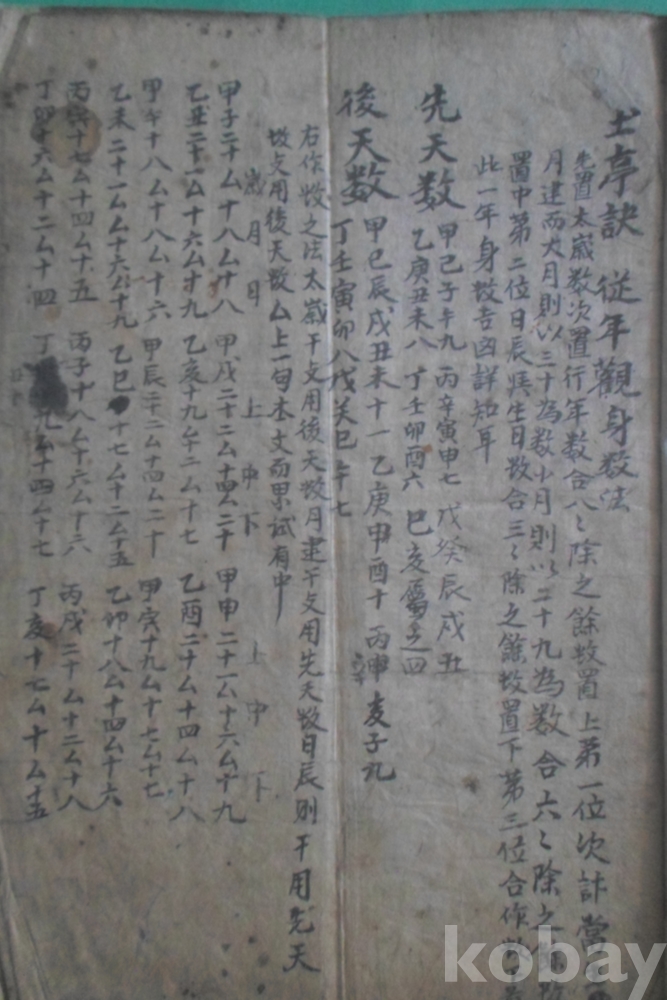 土亭訣 從年觀身数法
先置太歲数次置行年数合八〻除之餘数置上第一位次計當
月建而大月則以三十為数小月則以二十九為数合六〻除之餘数
置中第二位日辰與生日数合三〻除之餘数置下第三位合作数
此一年身数吉凶詳知耳
先天数 甲己子午九 丙辛寅申七 戊癸辰戌五
乙庚丑未八 丁壬卯酉六 巳亥屬之四
後天数 甲己辰戌丑未十一 乙庚申酉十 丙辛亥子九
丁壬寅卯八戊癸巳午七
右作数之法太歲干支用後天数月建干支用先天数日辰則干用先天
数支用後天数厶上一句本文而果試有中
歲 月 日 上 中 下 上 中 下
甲子二十厶十八厶十八 甲戌二十二厶十四厶二十 甲申二十一厶十六厶十九
乙丑二十一厶十六厶十九 乙亥十九厶十二厶十七 乙酉二十厶十四厶十八
甲午十八厶十八厶十六 甲辰二十二厶十四厶二十 甲寅十九厶十七厶十七
乙未二十一厶十六厶十九 乙巳十七厶十二厶十五 乙卯十八厶十四厶十六
丙寅十七厶十四厶十五 丙子十八厶十六厶十六 丙戌二十厶十二厶十八
丁卯十六厶十二厶十四 丁 九厶十四厶十七 丁亥十七厶十厶十五
kobay